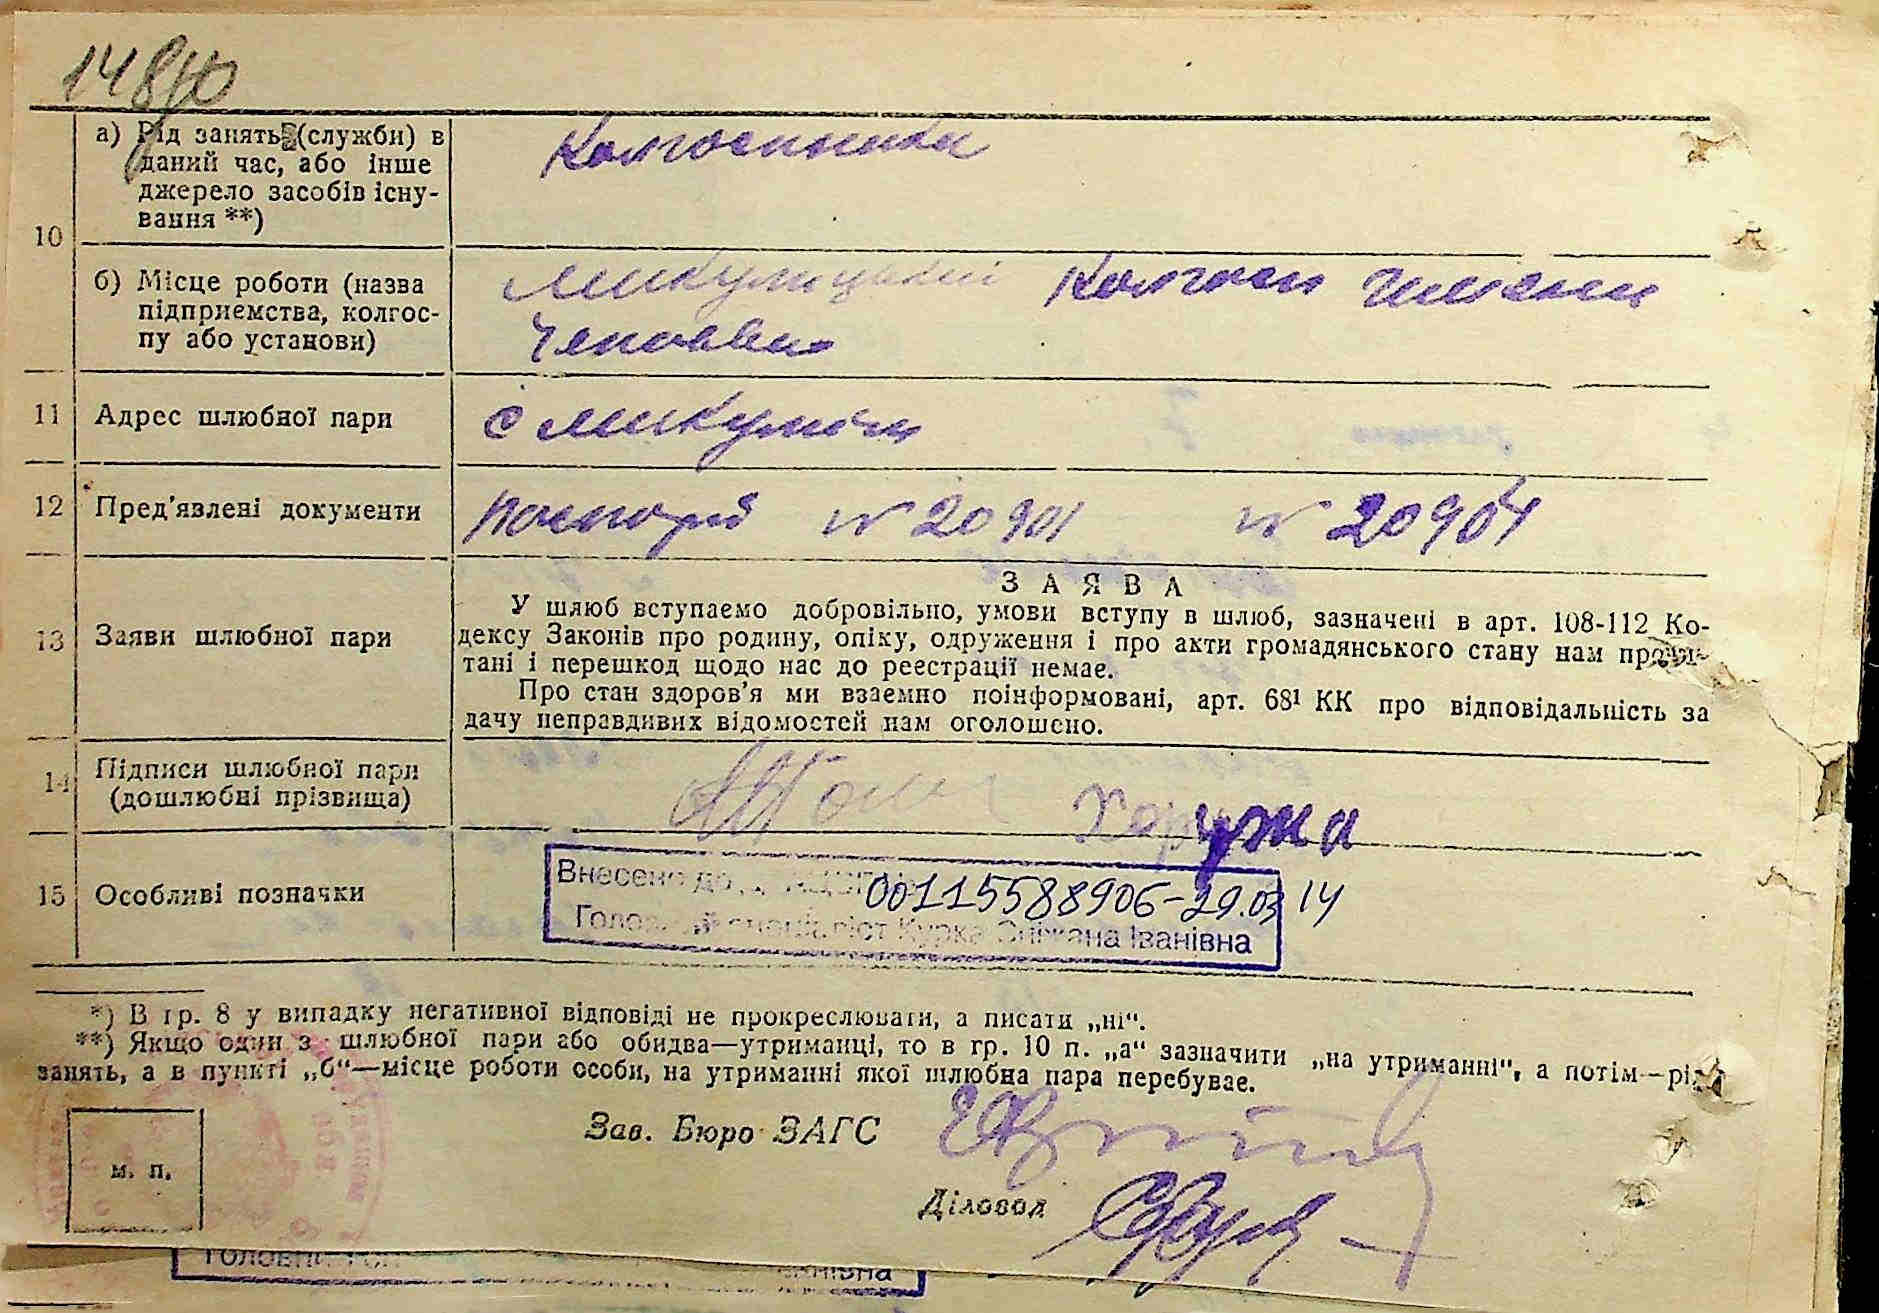 148/10
10
а) Рід занять (служби) в
даний час, або інше
джерело засобів існу-
вання **)
Колгоспники
б) Місце роботи (назва
підприємства, колгос-
пу або установи)
Микулицький Колгосп імени
11 Адрес шлюбної пари
с Микуличі
12 Пред'явлені документи
Паспорт № 20901 № 20904
13 Заяви шлюбної пари
ЗАЯВА
У шлюб вступаємо добровільно, умови вступу в шлюб, зазначені в арт. 108-112 Ко-
дексу Законів про родину, опіку, одруження і про акти громадянського стану нам прочи-
тані і перешкод щодо нас до реєстрації немає.
Про стан здоров'я ми взаємно поінформовані, арт. 68¹ КК про відповідальність за
дачу неправдивих відомостей нам оголошено.
14 Підписи шлюбної пари
(дошлюбні прізвища)
Хоружа
15 Особливі позначки
Внесено до 00115588906-29.03 14
Головний спеціаліст Курка Сніжана Іванівна
*) В гр. 8 у випадку негативної відповіді не прокреслювати, а писати „ні“.
**) Якщо один з шлюбної пари або обидва—утриманці, то в гр. 10 п. „а“ зазначити „на утриманні“, а потім—рід
занять, а в пункті „б“—місце роботи особи, на утриманні якої шлюбна пара перебуває.
Зав. Бюро ЗАГС
м. п.
Діловод